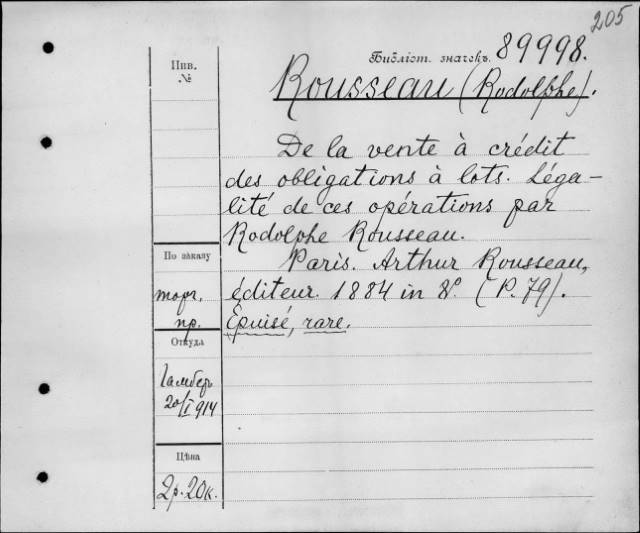 205
Библіот. значекъ. 89998.
Инв.
№
Rousseau (Rodolphe).
De la vente à crédit
des obligations à lots. Léga-
lité de ces opérations par
Rodolphe Rousseau.
Paris. Arthur Rousseau,
éditeur. 1884 in 8º. (P. 79).
Épuisé, rare.
По заказу
торг.
пр.
Откуда
Гамбер
20/I 914
Цѣна
2 р. 20 к.